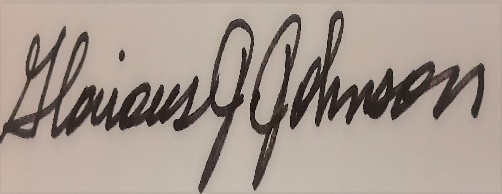 Glorious J Johnson